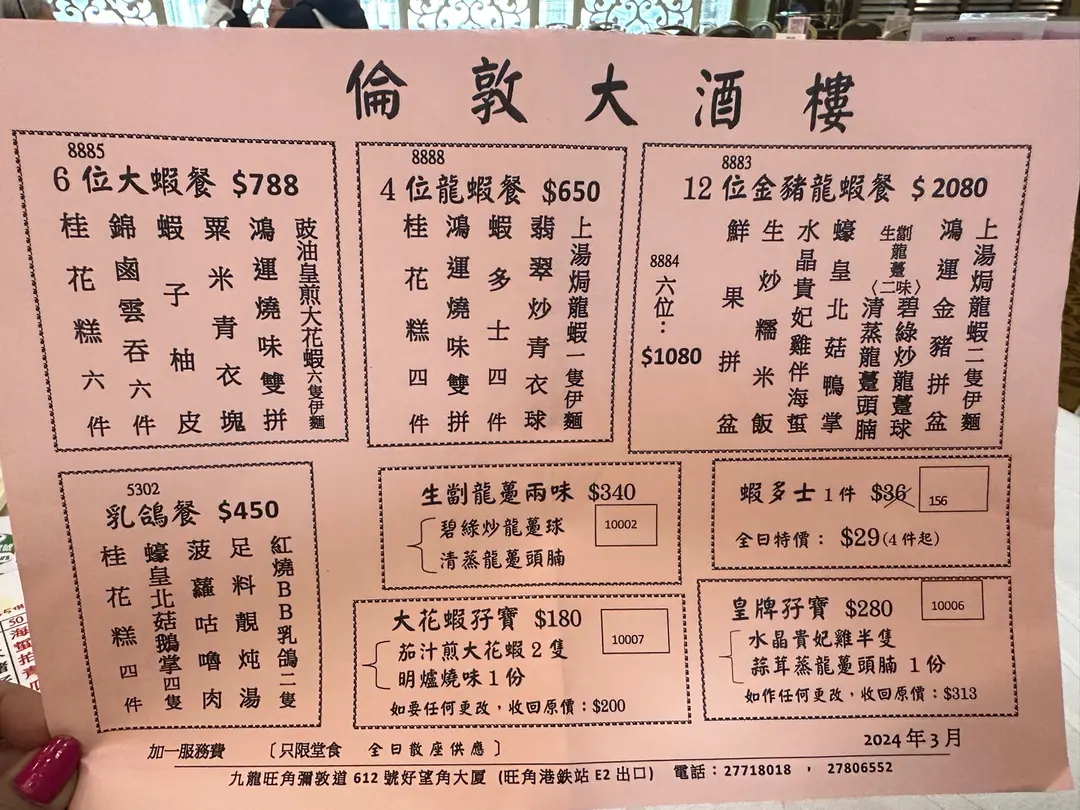 倫敦大酒樓
8885
6位大蝦餐 $788
豉油皇煎大花蝦六隻伊麵
鴻運燒味雙拼
粟米青衣塊
蝦子柚皮
錦鹵雲吞六件
桂花糕六件
8888
4位龍蝦餐 $650
上湯焗龍蝦一隻伊麵
翡翠炒青衣球
蝦多士四件
鴻運燒味雙拼
桂花糕四件
8883
12位金豬龍蝦餐 $2080
上湯焗龍蝦二隻伊麵
鴻運金豬拼盆
生劏龍躉〈二味〉
碧綠炒龍躉球
清蒸龍躉頭腩
蠔皇北菇鴨掌
水晶貴妃雞伴海蜇
生炒糯米飯
鮮果拼盆
8884
六位：
$1080
5302
乳鴿餐 $450
紅燒BB乳鴿二隻
足料靚炖湯
菠蘿咕嚕肉
蠔皇北菇鵝掌四隻
桂花糕四件
生劏龍躉兩味 $340
10002
碧綠炒龍躉球
清蒸龍躉頭腩
蝦多士1件 $36
156
全日特價： $29(4件起)
大花蝦孖寶 $180
10007
茄汁煎大花蝦2隻
明爐燒味1份
如要任何更改，收回原價：$200
皇牌孖寶 $280
10006
水晶貴妃雞半隻
蒜茸蒸龍躉頭腩 1份
如作任何更改，收回原價：$313
加一服務費 〔只限堂食 全日散座供應〕
2024年3月
九龍旺角彌敦道612號好望角大厦 (旺角港鉄站E2出口) 電話：27718018 ， 27806552